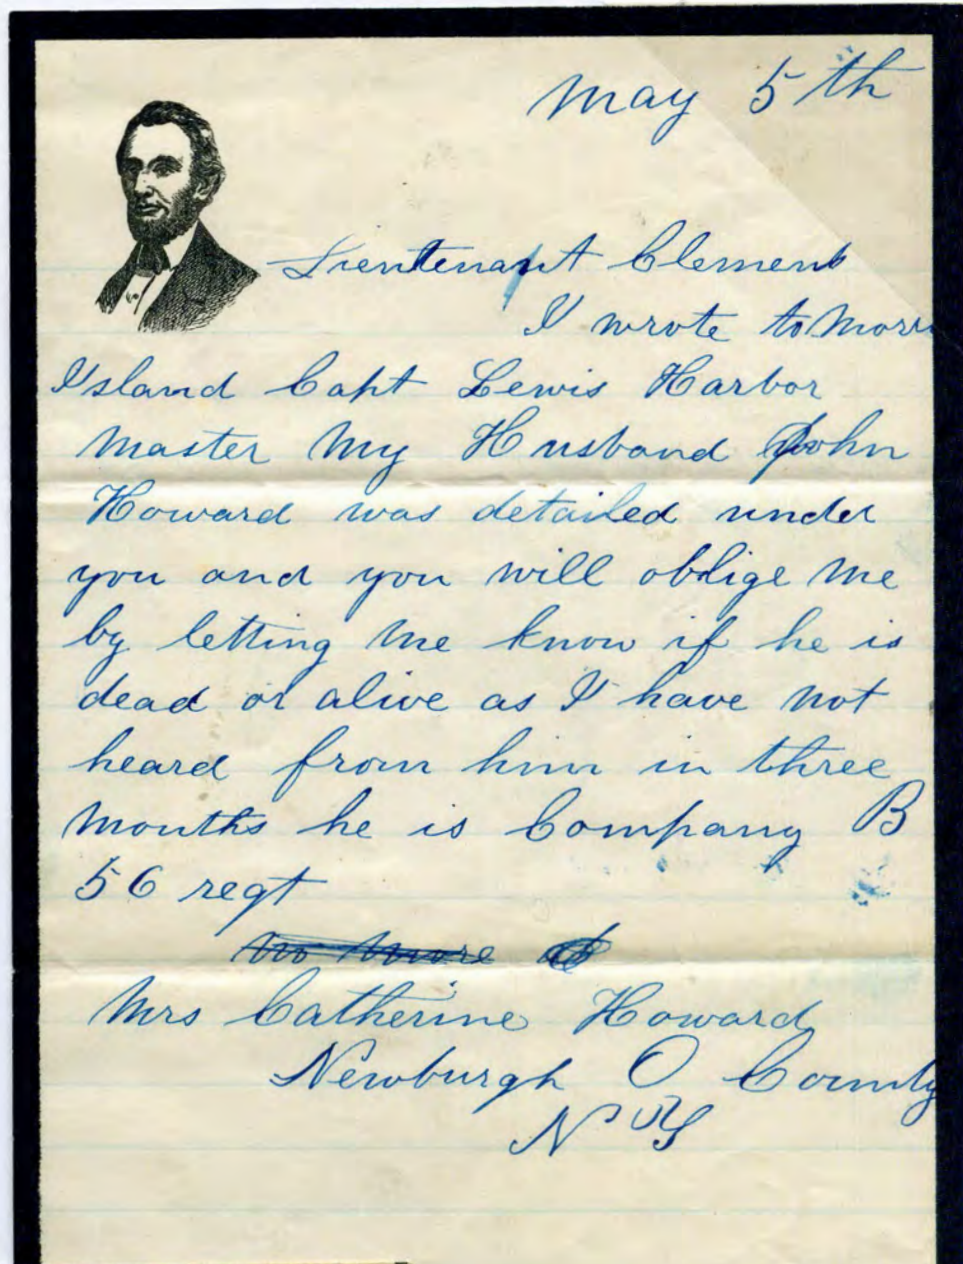 May 5th
Lieutenant Clement
I wrote to Morri
Island Capt Lewis Harbor
Master My Husband John
Howard was detailed under
you and you will oblige me
by letting me know if he is
dead or alive as I have not
heard from him in three
months he is Company B
56 regt
no more
Mrs Catherine Howard
Newburgh O County
N Y